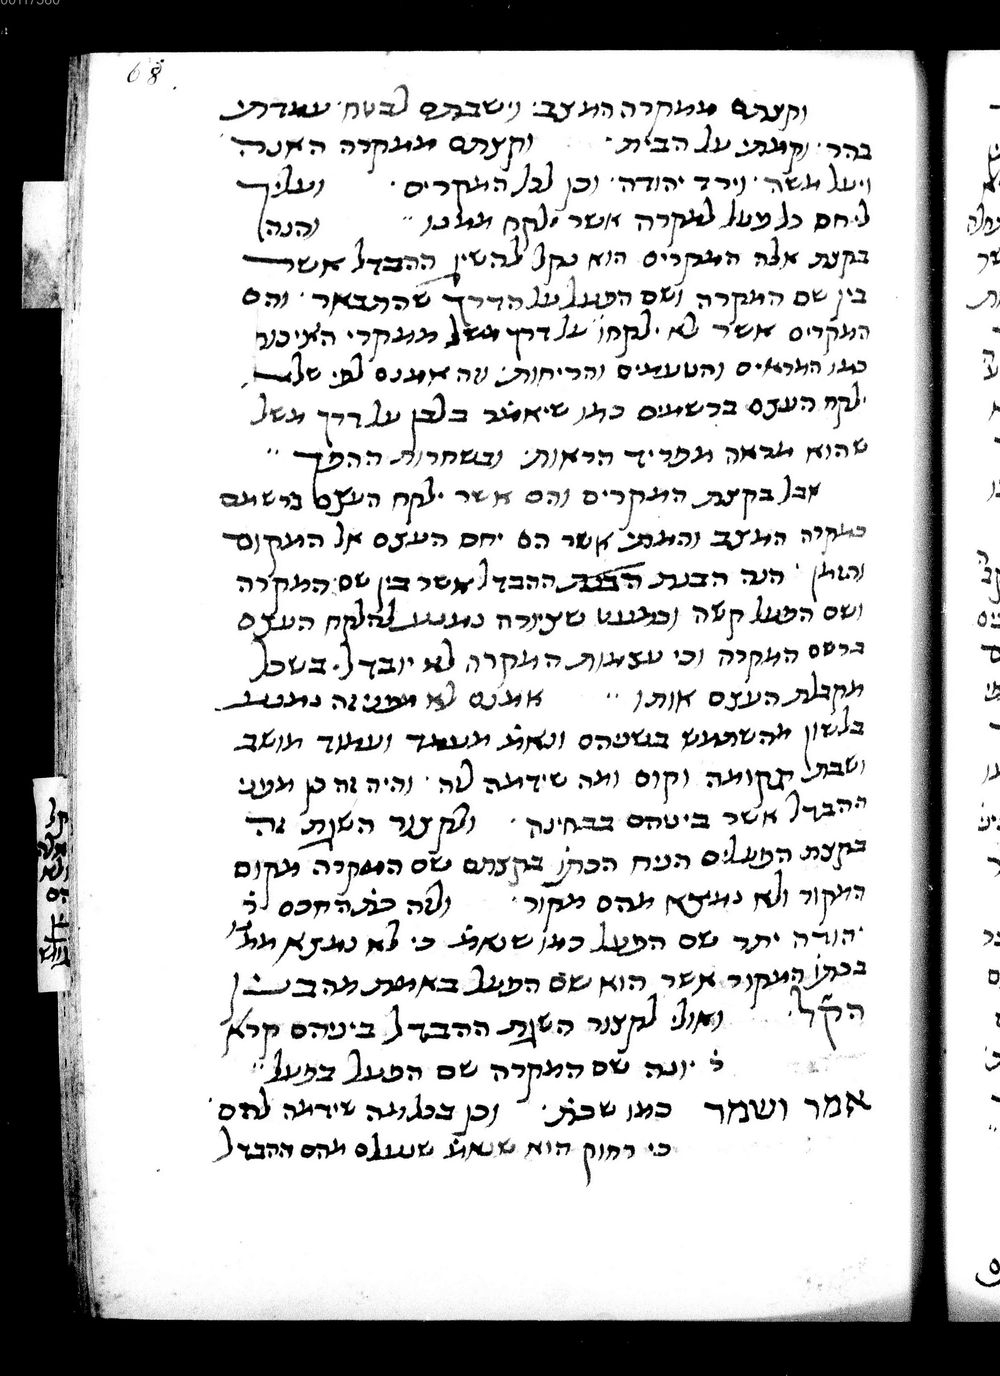 68
וקצתם ממקרה המצב · וישבתם לבטח · עמדתי
בהר · וקמתי על הבית · וקצתם ממקרה האנה
ויעל משה · וירד יהודה · וכן לכל המקרים · ועליך
ליחס כל פעל למקרה אשר ילקח ממנו והנה
בקצת אלה המקרים הוא נקל להשיג ההבדל אשר
בין שם המקרה ושם הפעל על הדרך שהתבאר · והם
המקרים אשר לא ילקחו על דרך משל ממקרי האיכות
כמו המראים והטעמים והריחות · וזה אמנם לפי שלא
ילקח העצם ברשמים כמו שיאמר בלבן על דרך משל
שהוא מראה מפריד הראות · ובשחרות ההפך
אבל בקצת המקרים והם אשר ילקח העצם ברשמם
כמקרה המצב והמתי אשר הם יחס העצם אל המקום
והזמן הנה הבנת ההבדל אשר בין שם המקרה
ושם הפעל קשה וכמעט שציורה נמנע להלקח העצם
ברשם המקרה וכי עצמות המקרה לא יובדל בשכל
מקבלת העצם אותו אמנם לא מפני זה נמנע
בלשון מהשתמש בשניהם ונאמר מעמד ועמוד מושב
ושבת תקומה וקום ומה שידמה לזה · והיה זה כן מפני
ההבדל אשר ביניהם בבחינה · ולקצור השגת זה
בקצת הפעלים הניח הכתו בקצתם שם המקרה מקום
המקור ולא נמצא מהם מקור · ולזה כתב החכם ר
יהודה יתר שם הפעל כמו שנאמר כי לא נמצא ממנו
בכתו המקור אשר הוא שם הפעל באמת מהבנין
הקל · ואולי לקצור השגת ההבדל ביניהם קרא
ר יונה שם המקרה שם הפעל בפעל
אמר ושמר כמו שכת · וכן בכל מה שידמה להם
כי רחוק הוא שנאמר שנעלם מהם ההבדל